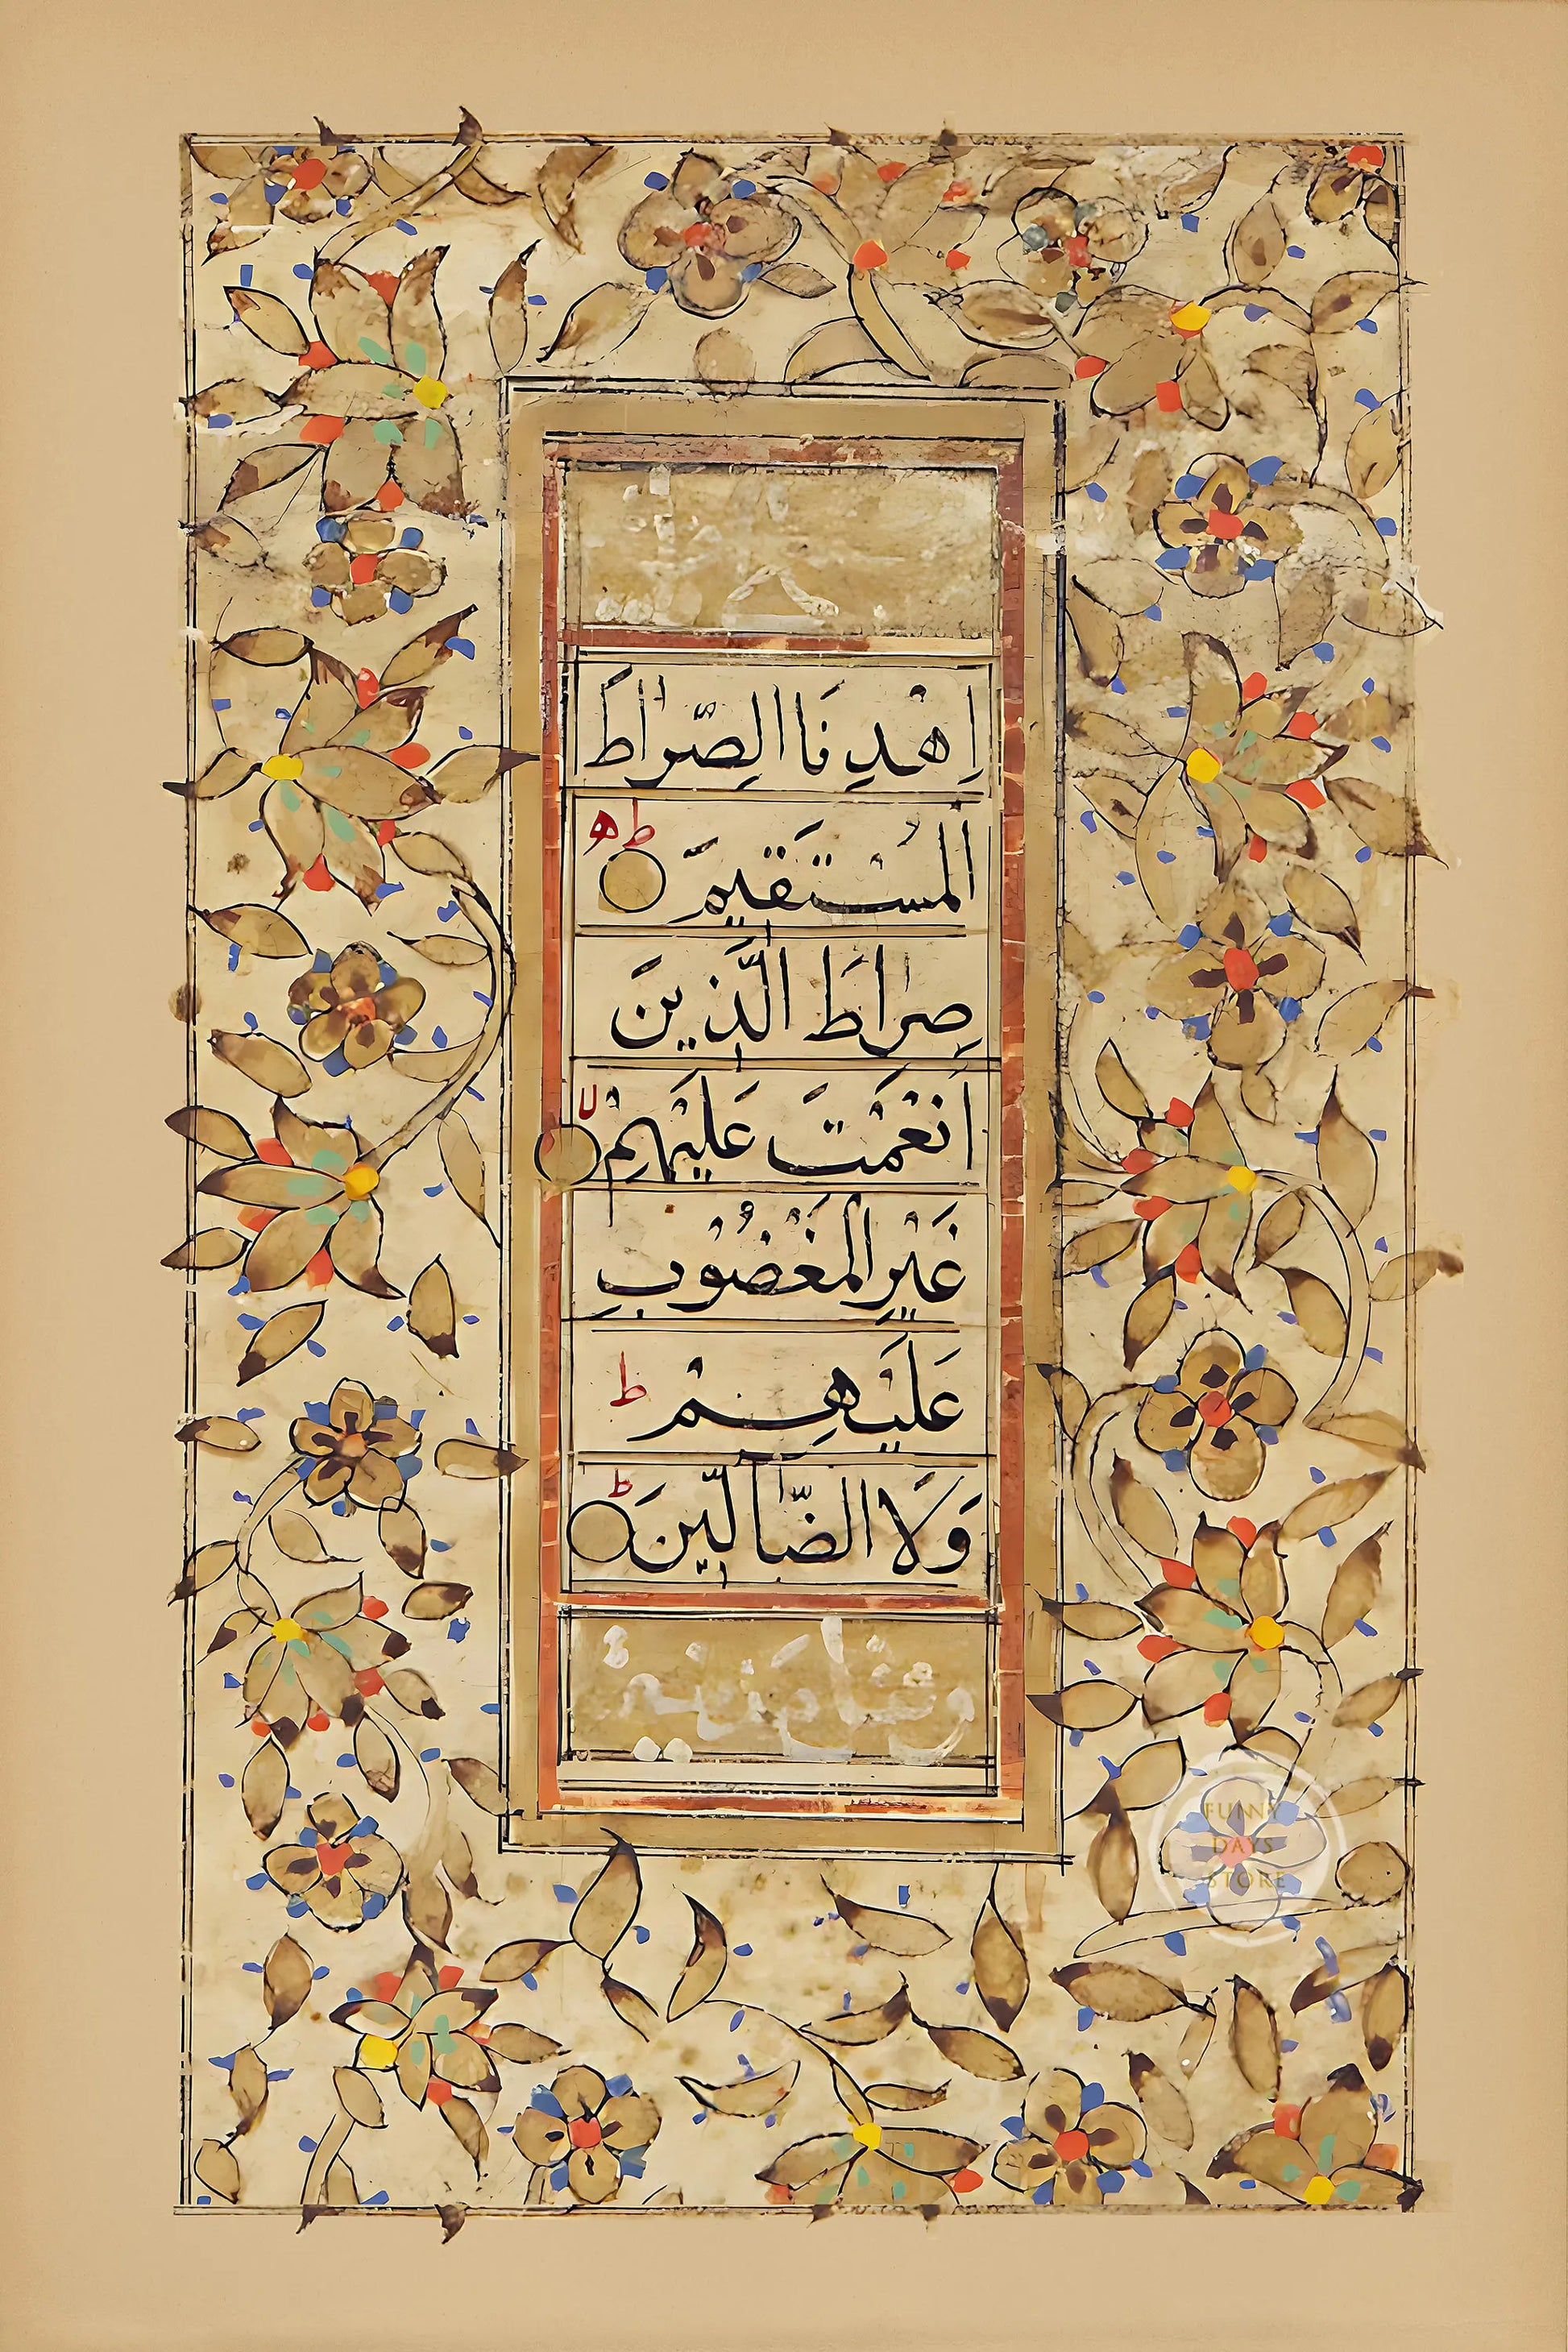 اِهْدِنَا الصِّرٰاطَ
الْمُسْتَقِيمَ ط ه
صِرٰاطَ الَّذِينَ
اَنْعَمْتَ عَلَيْهِمْ لا
غَيْرِ الْمَغْضُوبِ
عَلَيْهِمْ ط
وَلَا الضّٰالِّينَ ط
FUNNY
DAYS
STORE